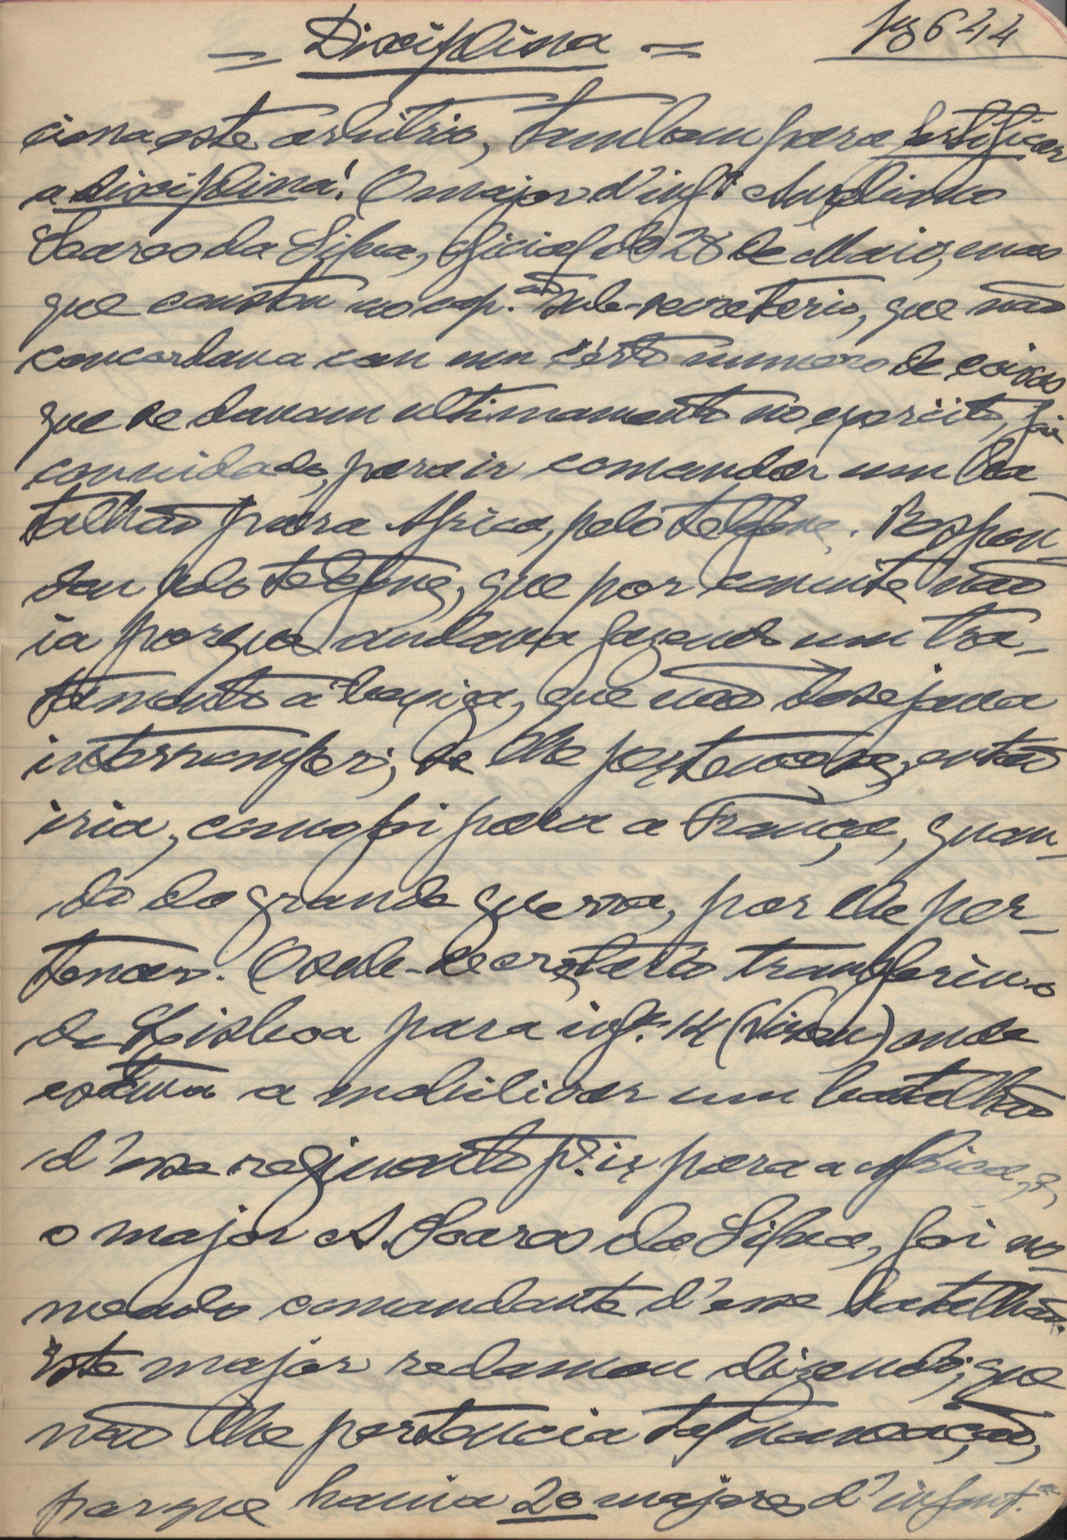 = Disciplina =
Pg 644
ciona este arbitrio, tambem para fortificar
a disciplina! O major d'inf.ª Aureliano
Soares da Silva, oficial do 28 de Maio, mas
que constou ao cap.ão sub-secretario, que não
concordava com um cérto numero de coisas
que se davam ultimamente no exercito, foi
convidado, para ir comandar um ba
talhão para Africa, pelo telefone. Respon-
deu pelo telefone, que por convite não
ia porque andava fazendo um tra-
tamento á bexiga, que não desejava
interromper; se lhe pertencesse, então
iria, como foi para a França, quan-
do da grande guerra, por lhe per-
tencer. O sub-secretario transferiu-o
de Lisboa para inf.ª 14 (Vizeu) onde
estava a mobilizar um batalhão
d'esse regimento p.ª ir para a Africa, e,
o major A. Soares da Silva, foi no-
meado comandante d'esse batalhão.
Este major reclamou dizendo; que
não lhe pertencia tal nomeação,
porque havia 20 majores d'infant.ª